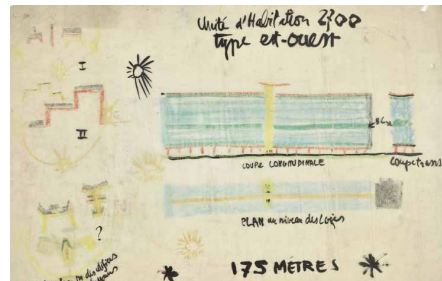 Unité d'Habitation 2700
type est-ouest
I
II
COUPE LONGITUDINALE
Coupe trans
PLAN au niveau des Loges
?
175 METRES